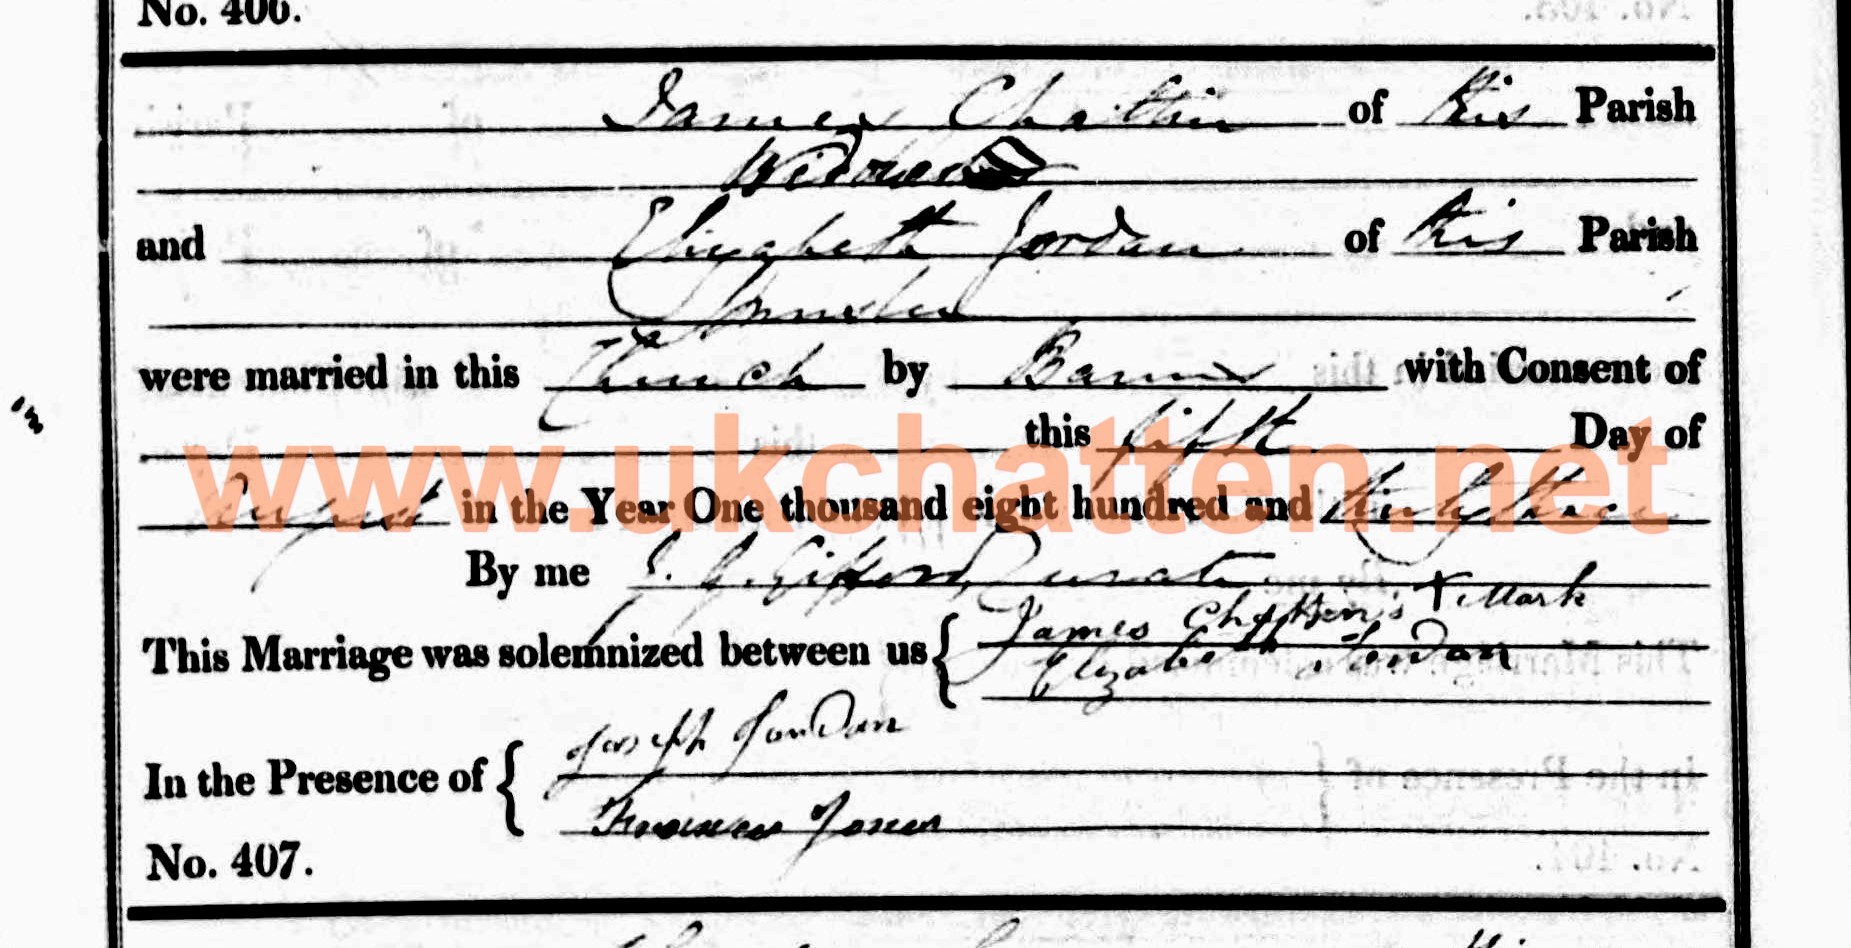 No. 406.
James Chattin of this Parish
Widower
and Elizabeth Jordan of this Parish
Spinster
were married in this Church by Banns with Consent of
this fifth Day of
www.ukchatten.net
August in the Year One thousand eight hundred and thirty three
By me J. Gifford, Curate
This Marriage was solemnized between us { James Chattin's X Mark
Elizabeth Jordan
In the Presence of { Joseph Jordan
Frances Jones
No. 407.